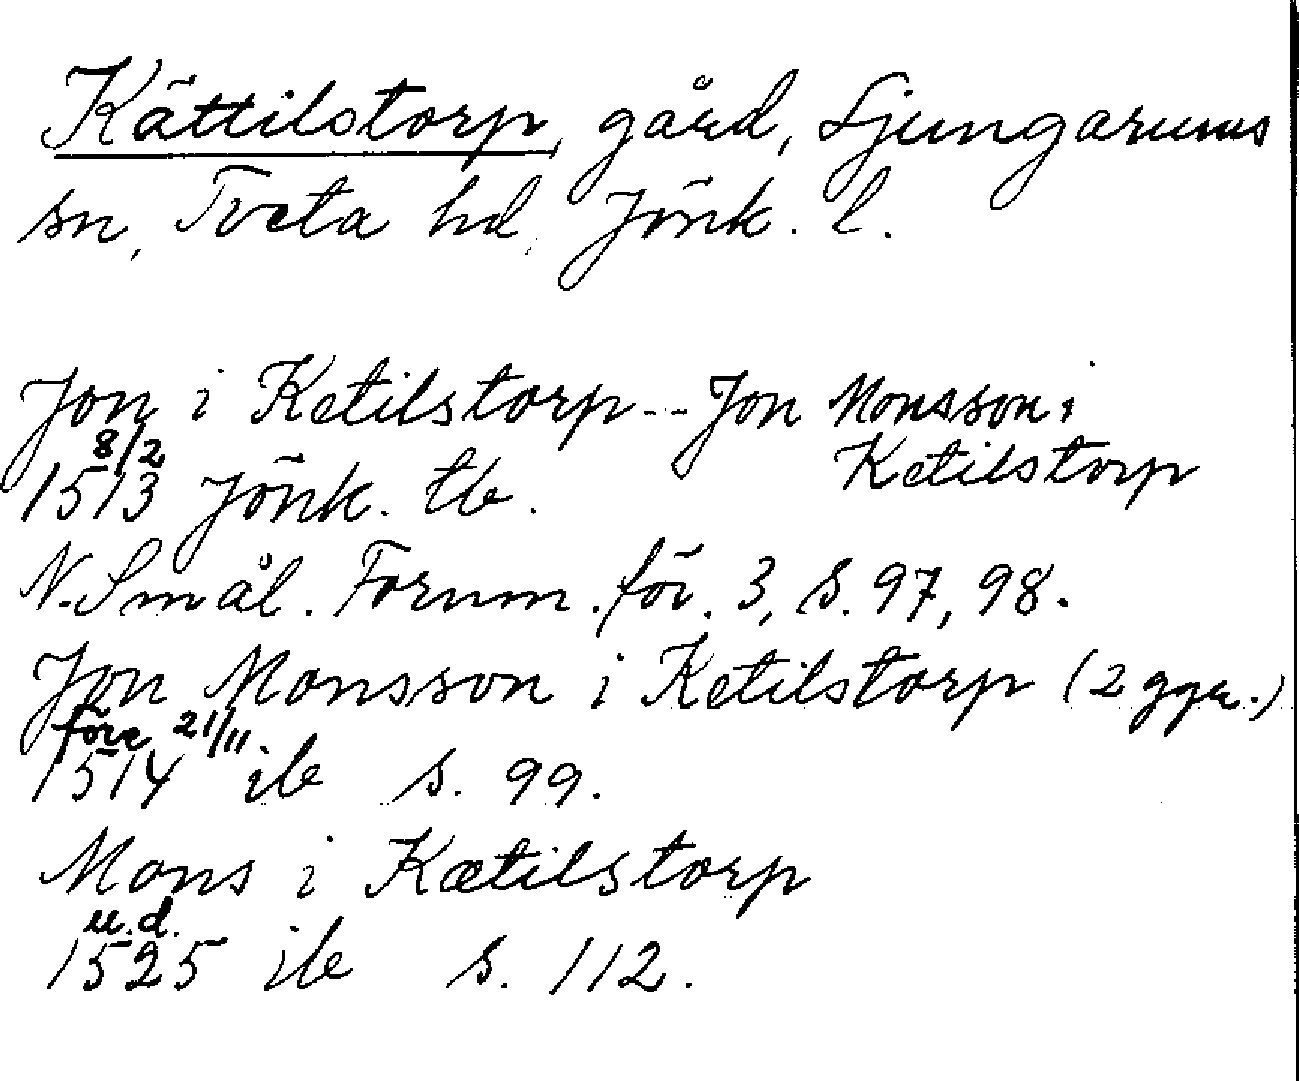 Kättilstorp, gård, Ljungarums
sn, Tveta hd, Jönk. l.
Jon i Ketilstorp -- Jon Monsson i
Ketilstorp
8/2
1513 Jönk. tb.
N. Smål. Fornm. för. 3, s. 97, 98.
Jon Monsson i Ketilstorp (2 ggr.)
före 21/11
1514 ib s. 99.
Mons i Kætilstorp
u.d.
1525 ib s. 112.